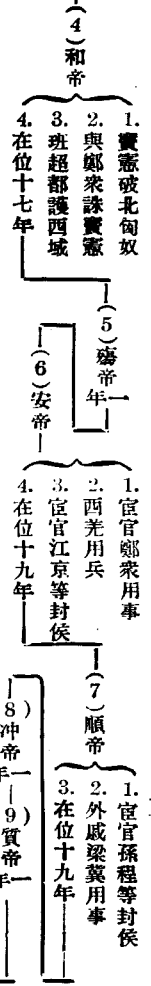 (4)和帝
1.竇憲破北匈奴
2.與鄭衆誅竇憲
3.班超都護西域
4.在位十七年
(5)殤帝
一年
(6)安帝
1.宦官鄭衆用事
2.西羌用兵
3.宦官江京等封侯
4.在位十九年
(7)順帝
1.宦官孫程等封侯
2.外戚梁冀用事
3.在位十九年
8)冲帝
一年
9)質帝
一年